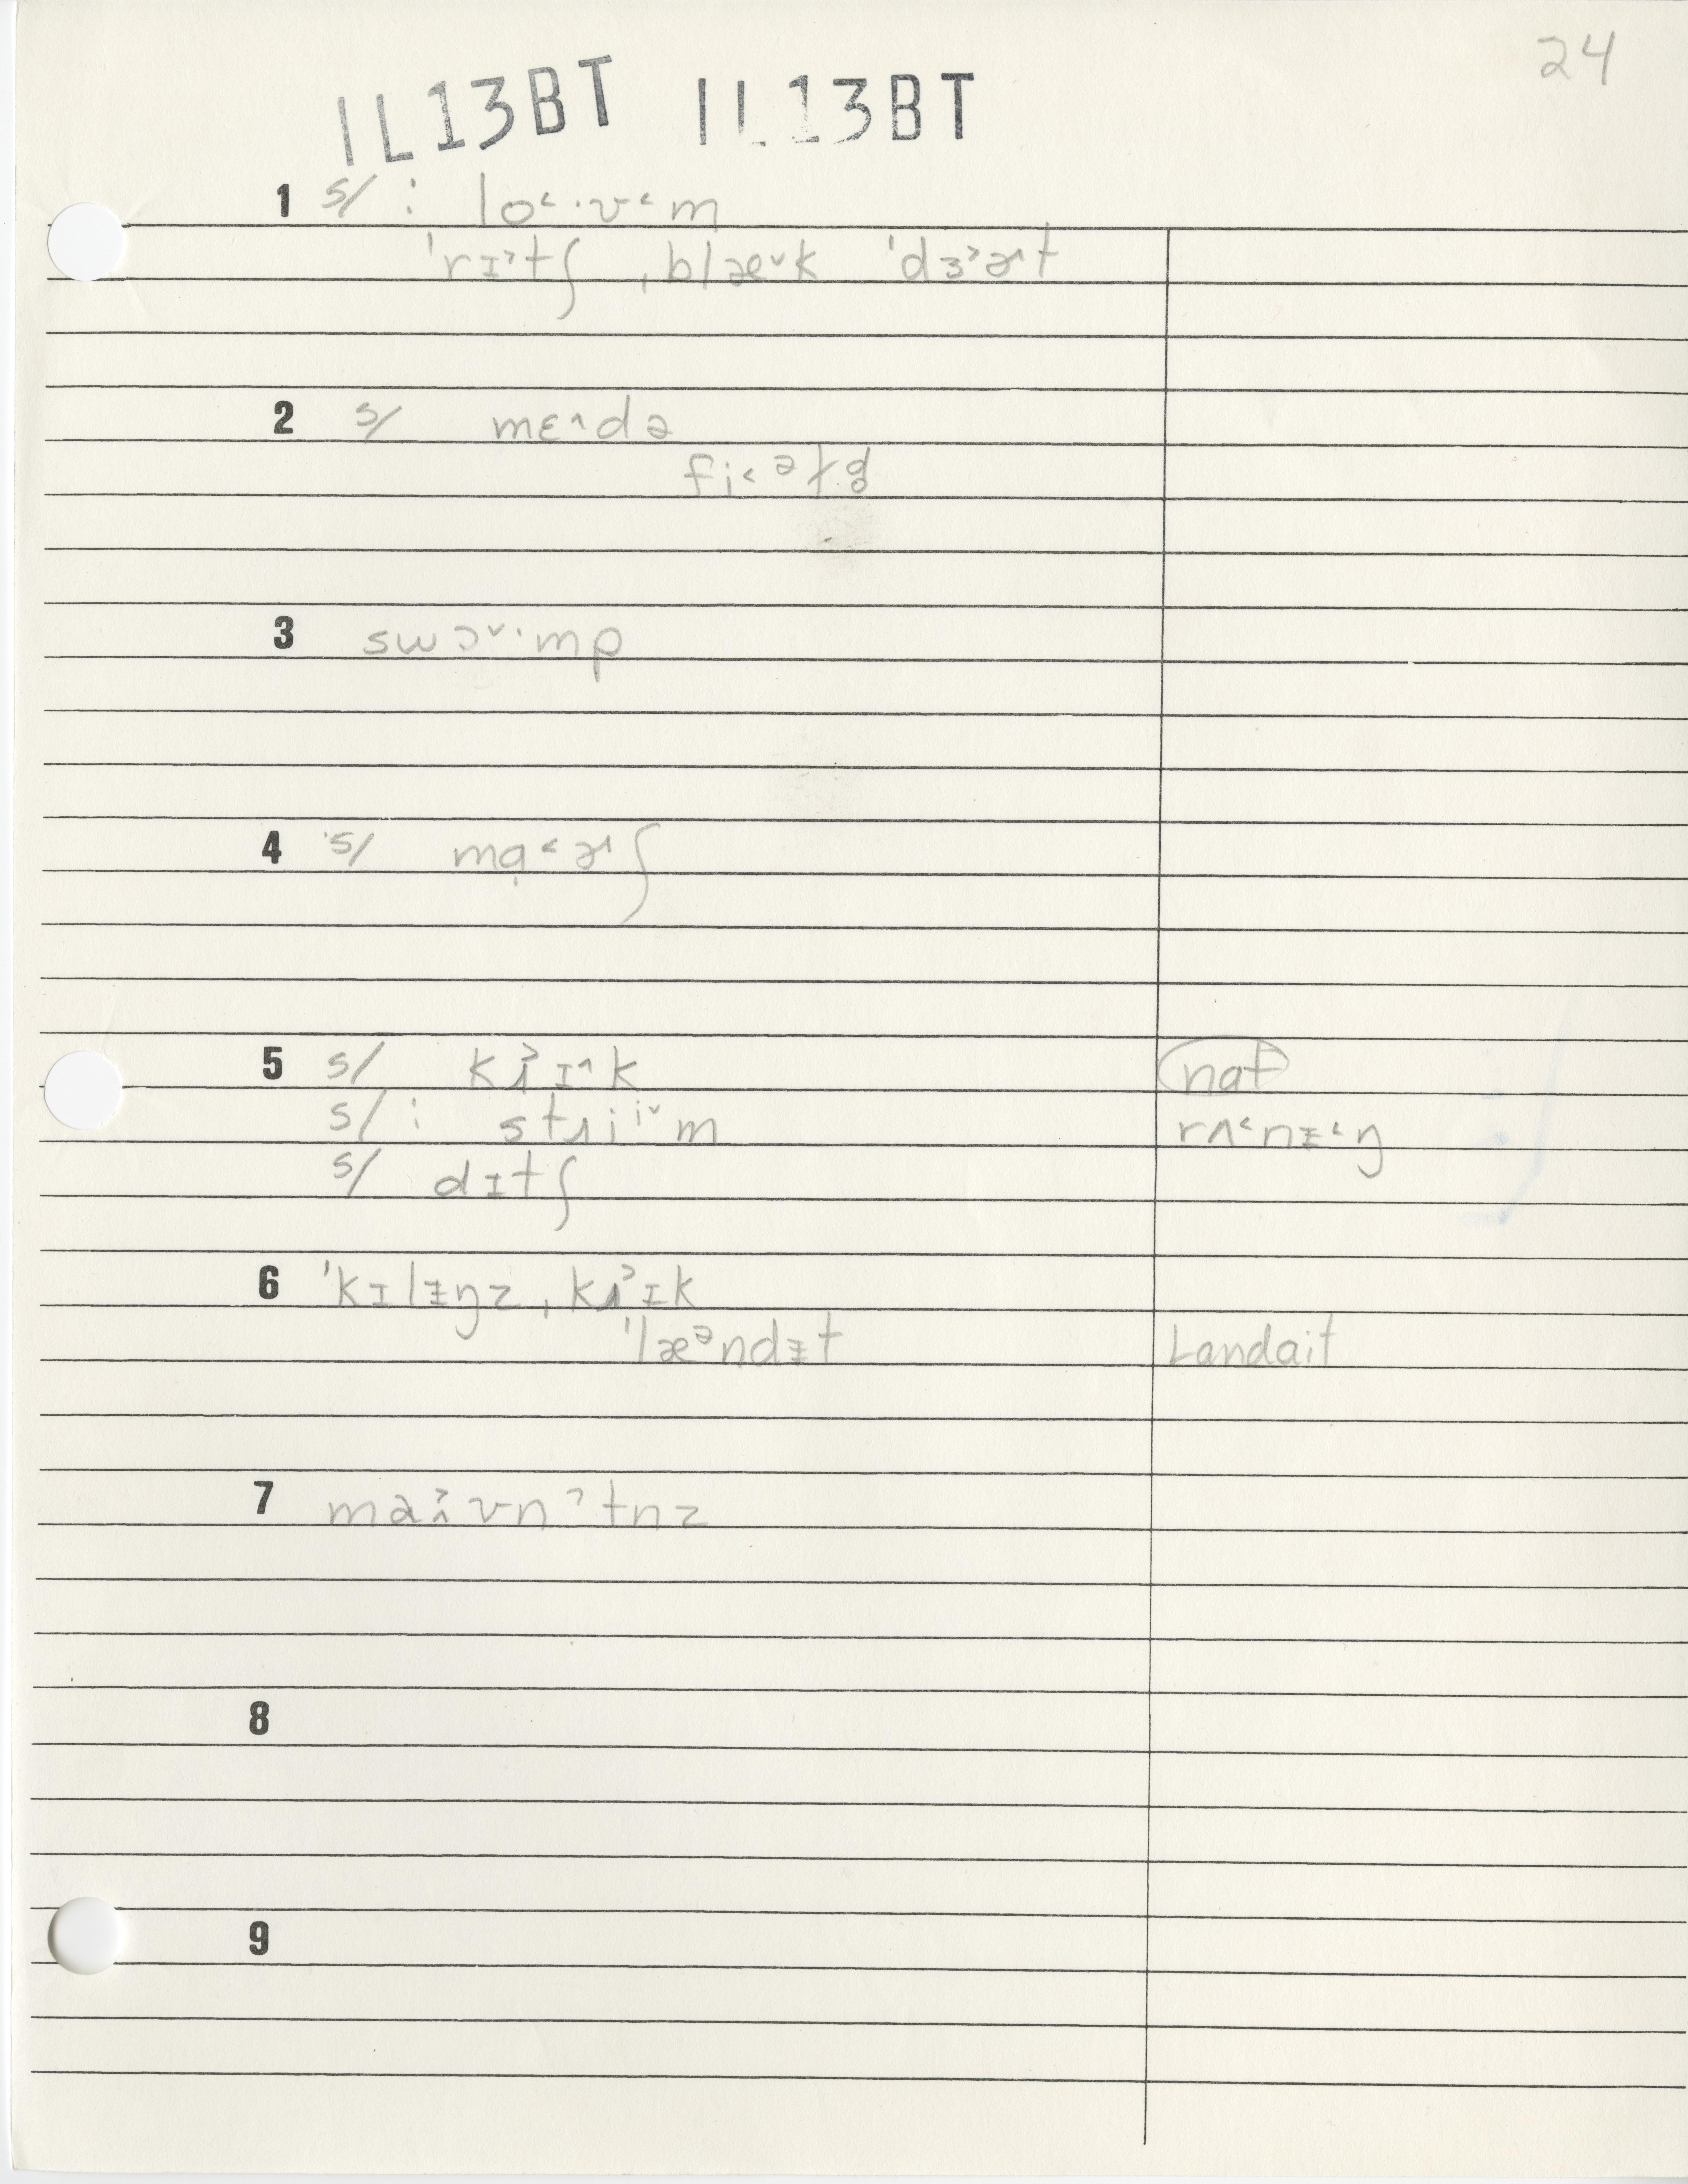 24
IL13BT IL13BT
1 s/ : lo˂·ʊ˂m
ˈrɪ˃tʃ ˌblæ˅k ˈdɜ˃ɚt
2 s/ mɛ˄də
fi˂əɫd̥
3 swɔ˅·mp
4 s/ mɑ̣˂ɚʃ
5 s/ kɹ˃ɪ˄k (nat)
s/ : stɹiⁱ˅m rʌ˂nɪ̵˂ŋ
s/ dɪtʃ
6 ˈkɪlɪ̵ŋz ˌkɹ˃ɪk
ˈlæᵊndɪ̵t Landait
7
8
9